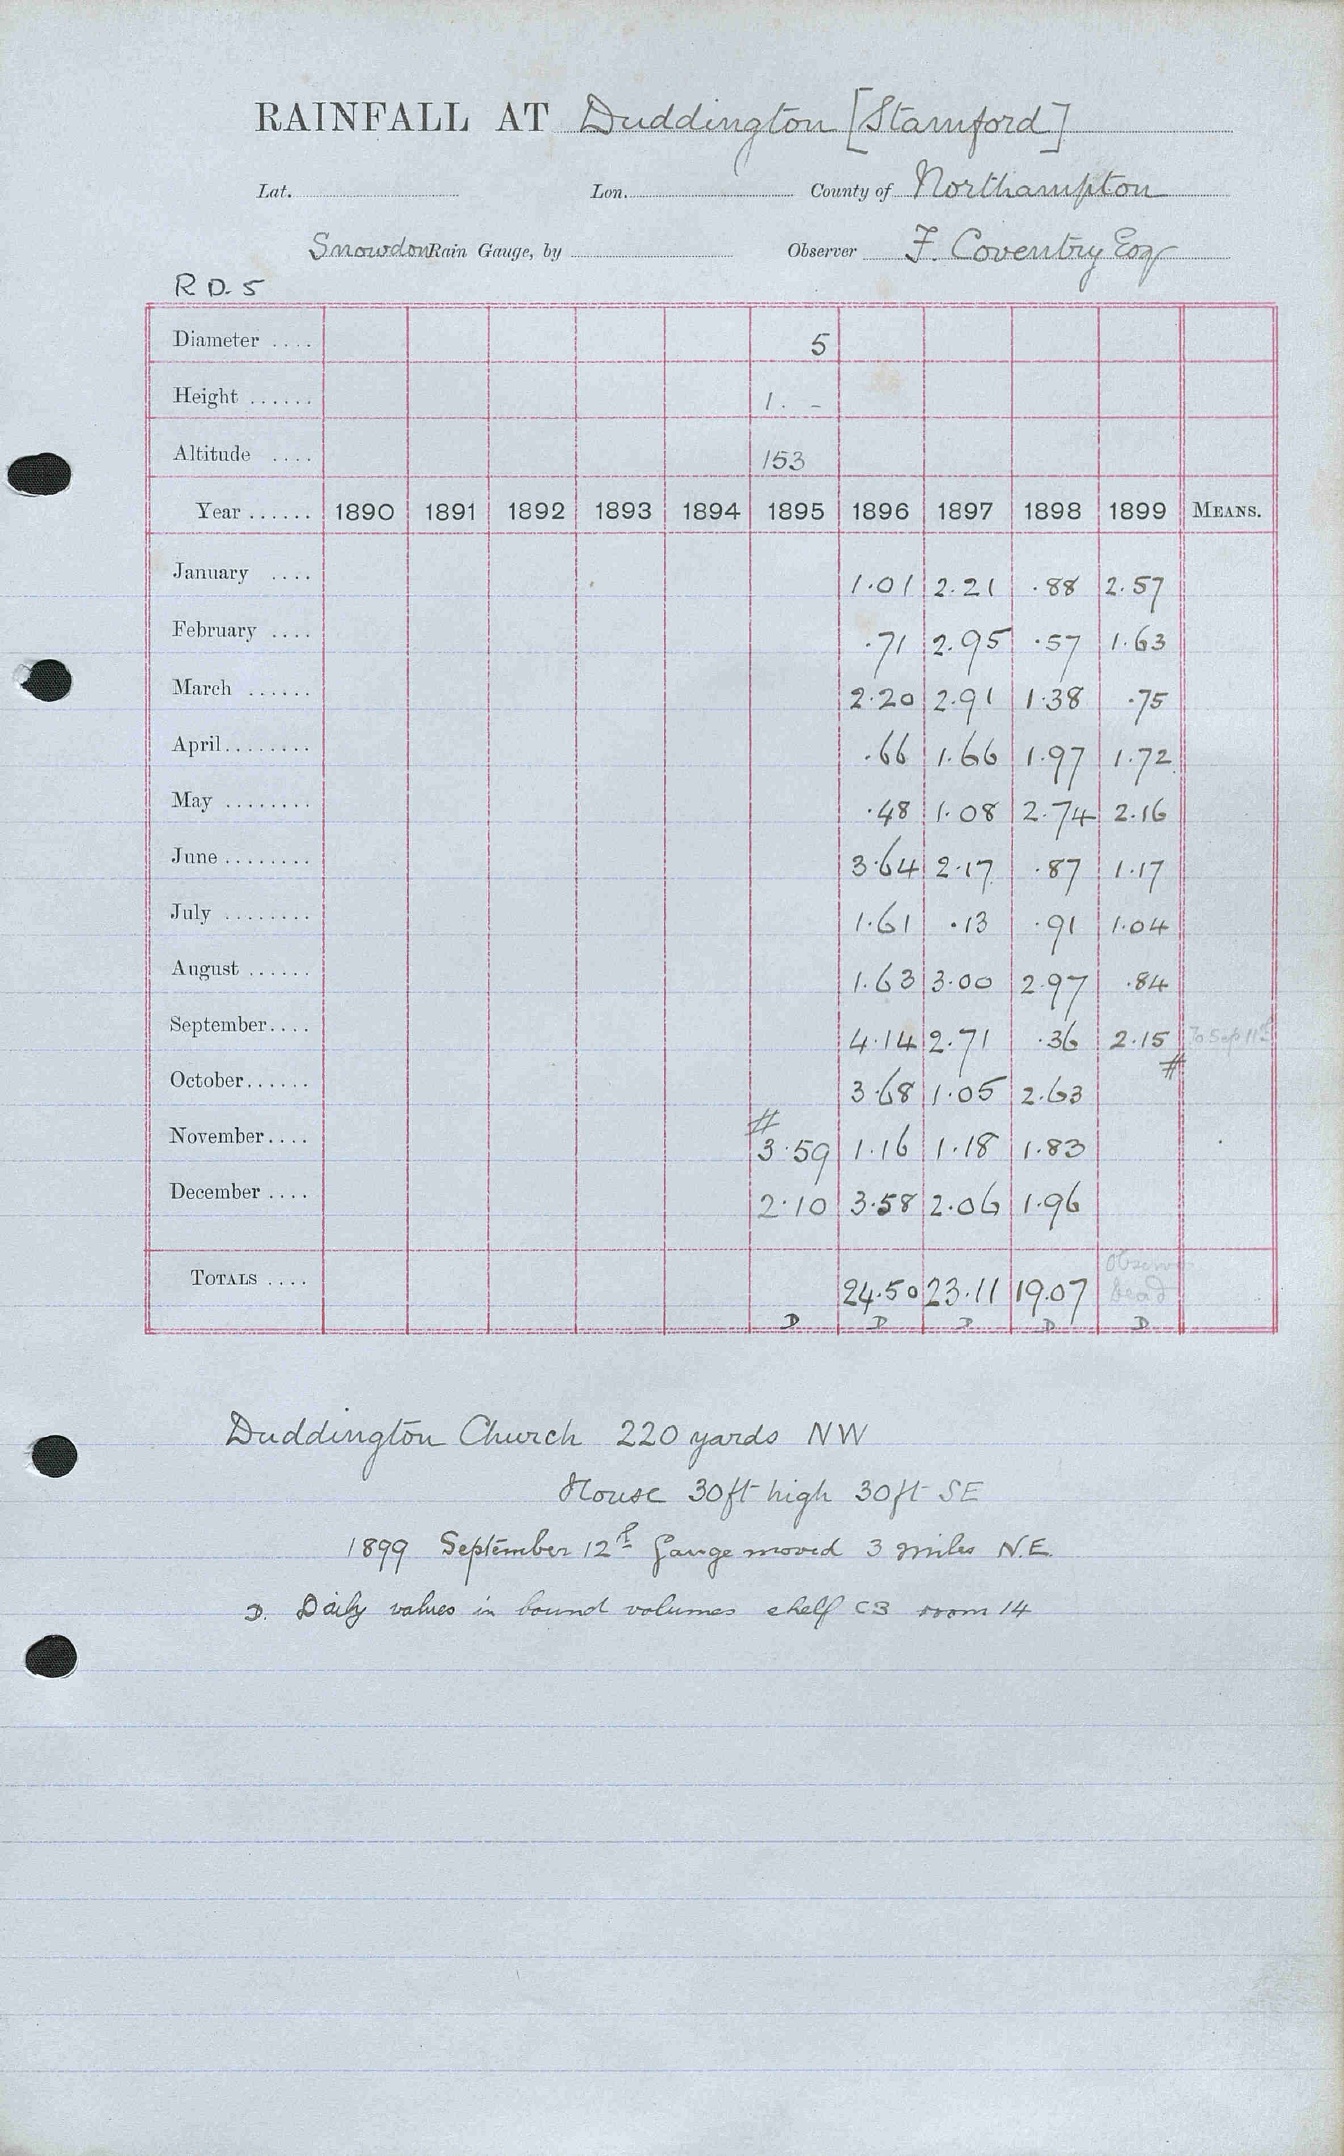 RAINFALL AT Duddington [Stamford]
Lat. Lon. County of Northampton
Snowdon Rain Gauge, by Observer F. Coventry Esq
R D. 5
Diameter .... 5
Height ...... 1. -
Altitude .... 153
Year ...... 1890 1891 1892 1893 1894 1895 1896 1897 1898 1899 MEANS.
January .... 1.01 2.21 .88 2.57
February .... .71 2.95 .57 1.63
March ...... 2.20 2.91 1.38 .75
April........ .66 1.66 1.97 1.72
May ........ .48 1.08 2.74 2.16
June ........ 3.64 2.17 .87 1.17
July ........ 1.61 .13 .91 1.04
August ...... 1.63 3.00 2.97 .84
September.... 4.14 2.71 .36 2.15 To Sep 11th
#
October...... 3.68 1.05 2.63
#
November.... 3.59 1.16 1.18 1.83
December .... 2.10 3.58 2.06 1.96
Observer
TOTALS .... 24.50 23.11 19.07 Dead
D D D D D
Duddington Church 220 yards NW
House 30ft high 30ft SE
1899 September 12th Gauge moved 3 miles N.E.
D. Daily values in bound volumes shelf C3 room 14